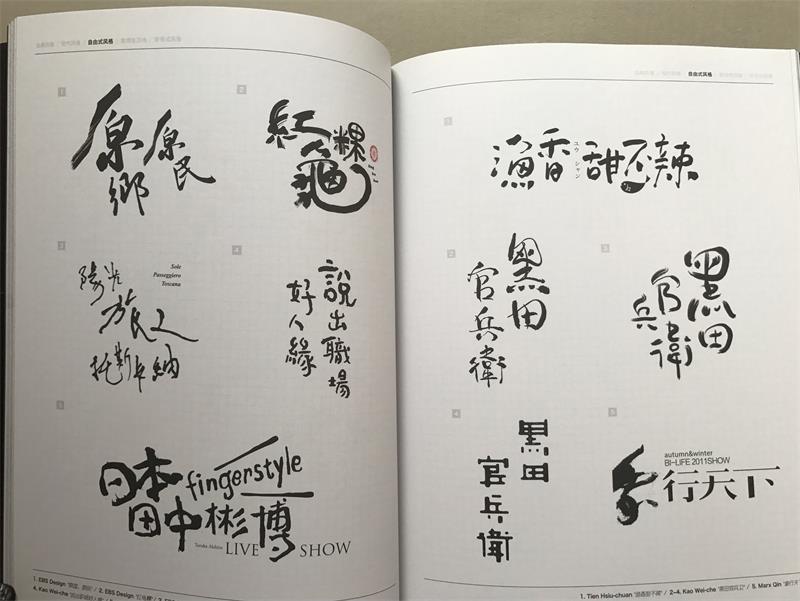 自由式风格
1
原鄉
原民
2
紅龜粿
3
陽光
旅人
托斯卡納
Sole
Passeggiero
Toscana
4
說出職場
好人緣
5
日本
fingerstyle
田中彬博
Tanaka Akihiro
LIVE SHOW
1. EBS Design "原鄉、原民" / 2. EBS Design "紅龜粿"
4. Kao Wei-che
自由式风格
1
漁香甜不辣
ユウ シャン
2
黑田
官兵衛
3
黑田
官兵衛
4
黑田
官兵衛
5
autumn&winter
BI-LIFE 2011SHOW
象行天下
1. Tien Hsiu-chuan "漁香甜不辣" / 2-4. Kao Wei-che "黑田官兵卫" / 5. Marx Qin "象行天